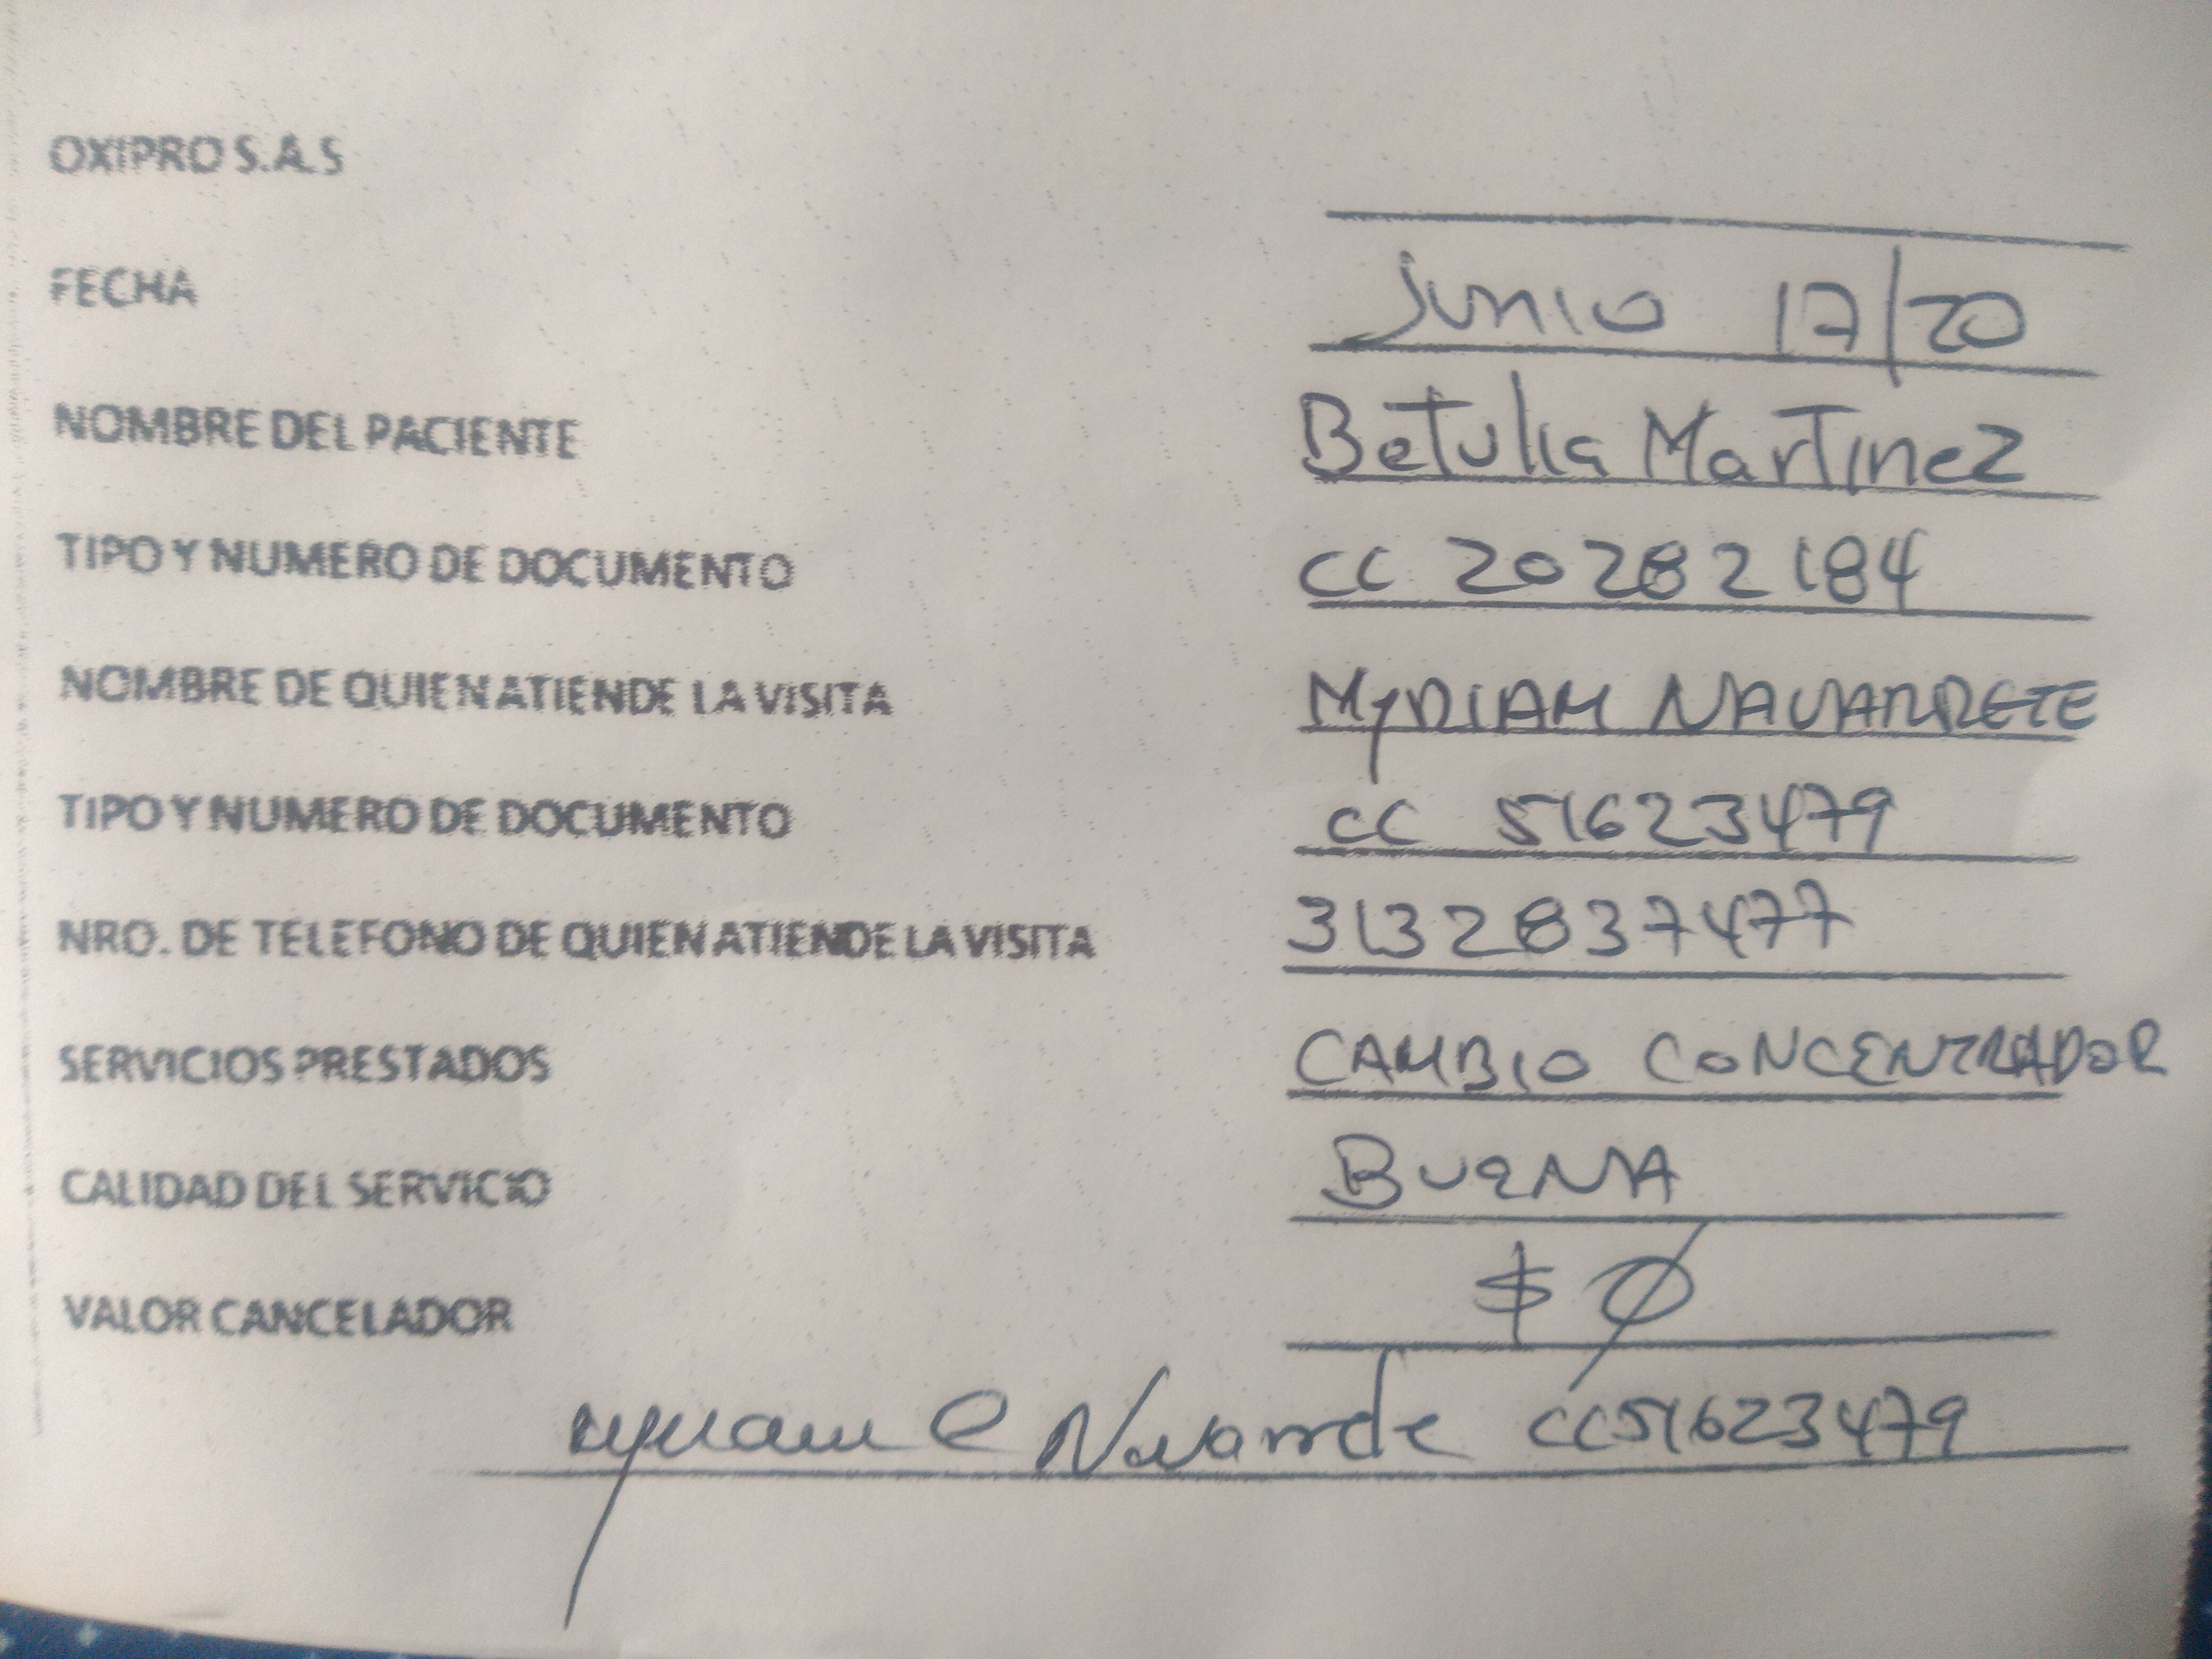 OXIPRO S.A.S
FECHA Junio 17/20
NOMBRE DEL PACIENTE Betulia Martinez
TIPO Y NUMERO DE DOCUMENTO CC 20282184
NOMBRE DE QUIEN ATIENDE LA VISITA MYRIAM NAVARRETE
TIPO Y NUMERO DE DOCUMENTO CC 51623479
NRO. DE TELEFONO DE QUIEN ATIENDE LA VISITA 3132837477
SERVICIOS PRESTADOS CAMBIO CONCENTRADOR
CALIDAD DEL SERVICIO BUENA
VALOR CANCELADOR $ 0
Myriam C Navarrete CC51623479